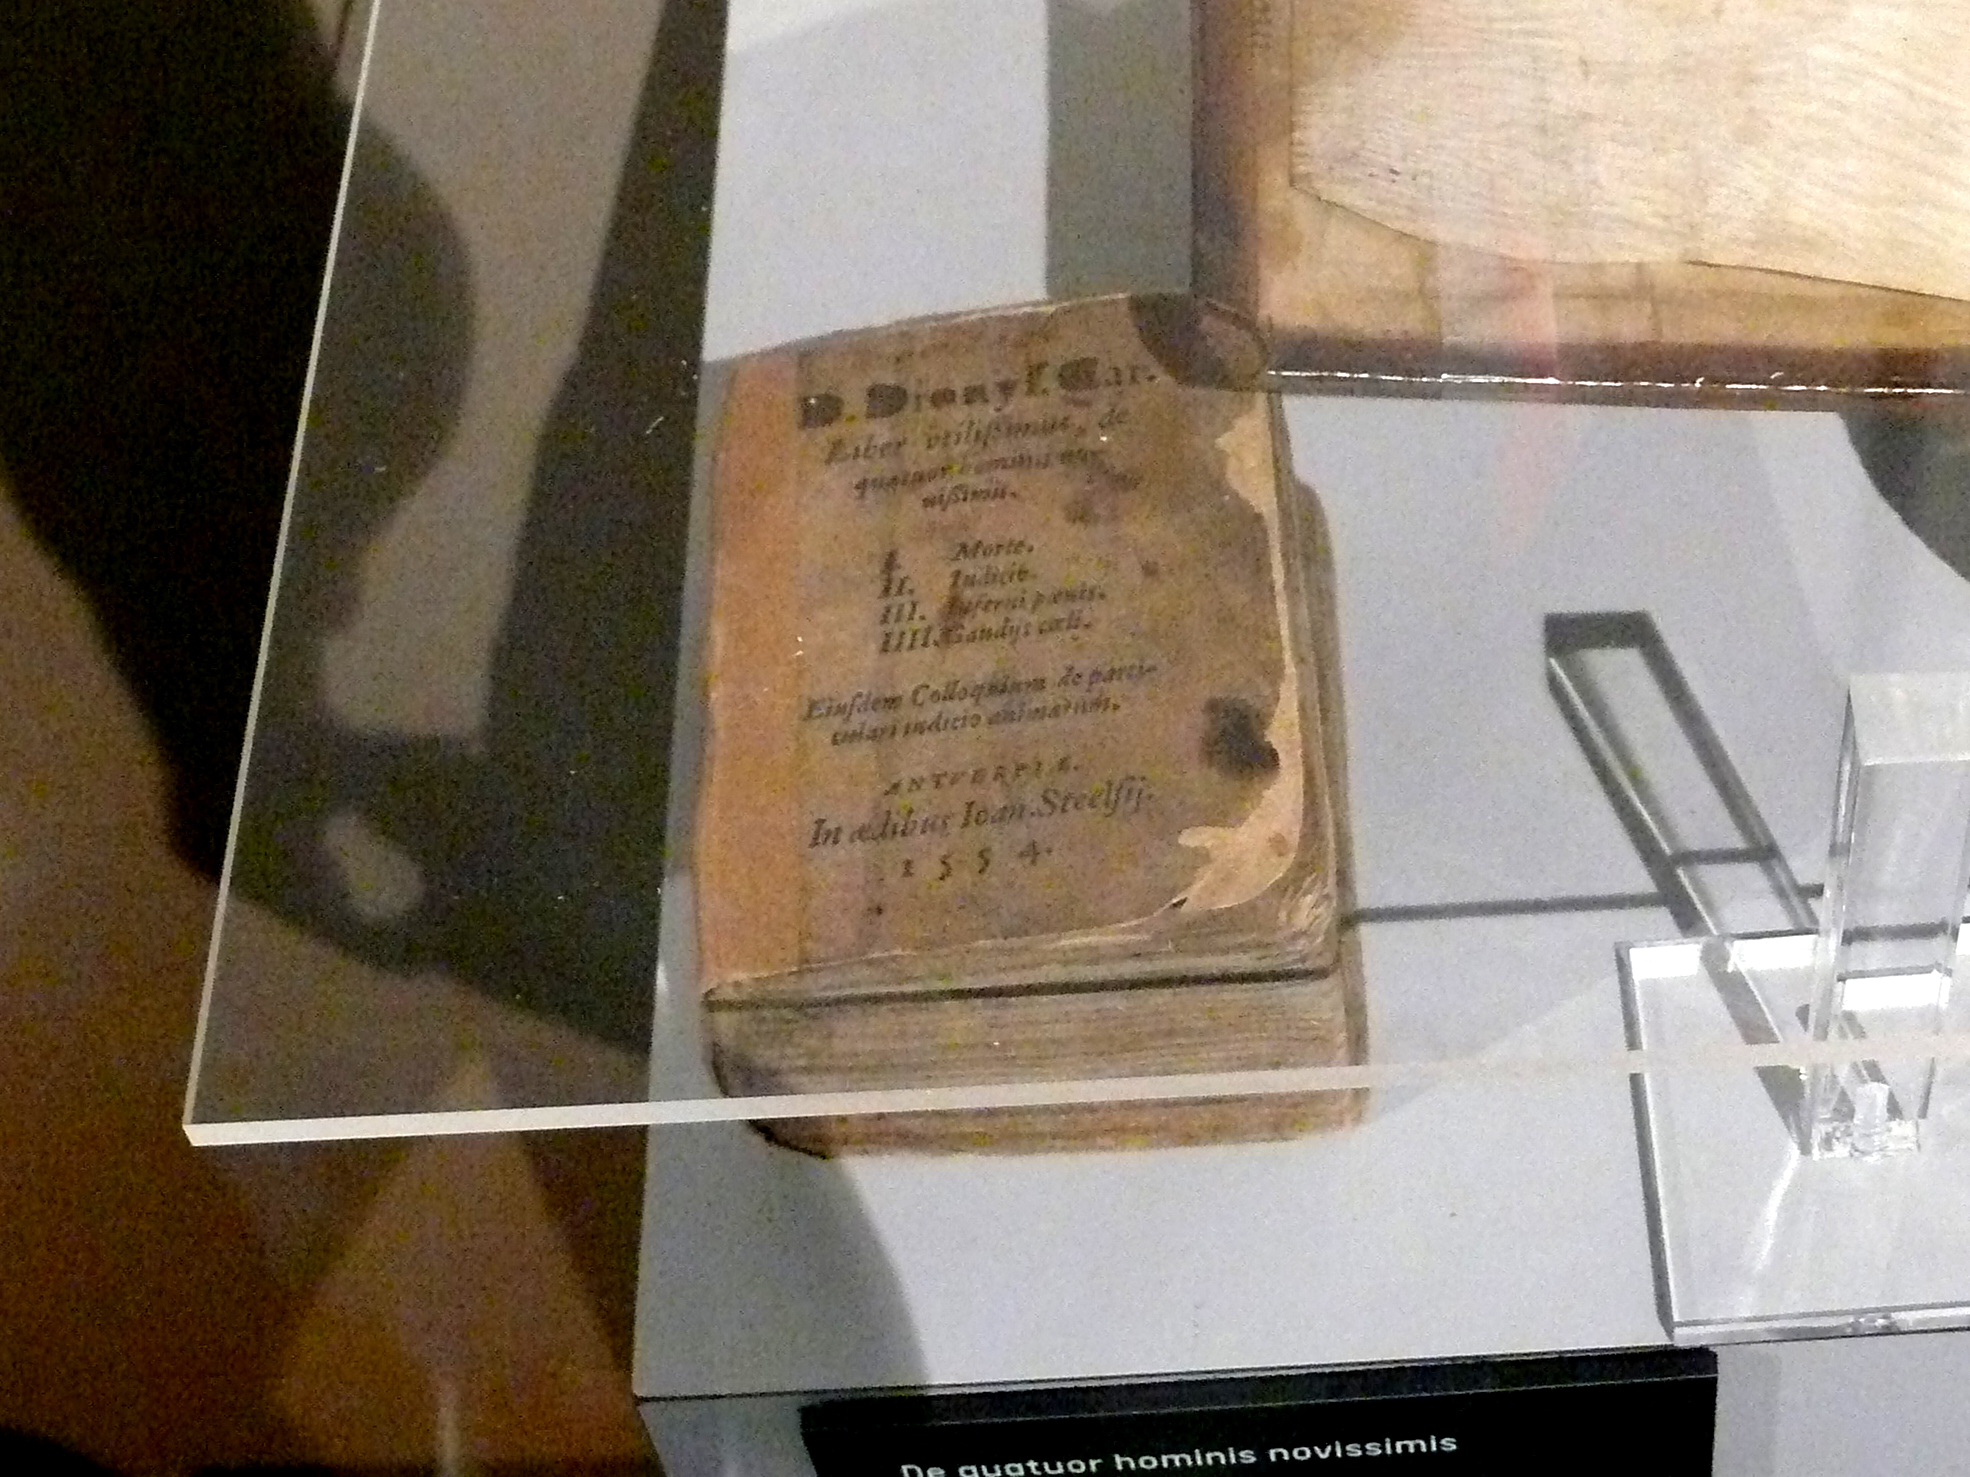 D. Dionyſ. Car.
Liber vtilißimus, de
quatuor hominis no-
uißimis.
I. Morte.
II. Iudicio.
III. Inferni pœnis.
IIII. Gaudijs cœli.
Eiuſdem Colloquium de parti-
culari iudicio animarum.
ANTVERPIÆ.
In ædibus Ioan. Steelſij.
1 5 5 4.
De quatuor hominis novissimis